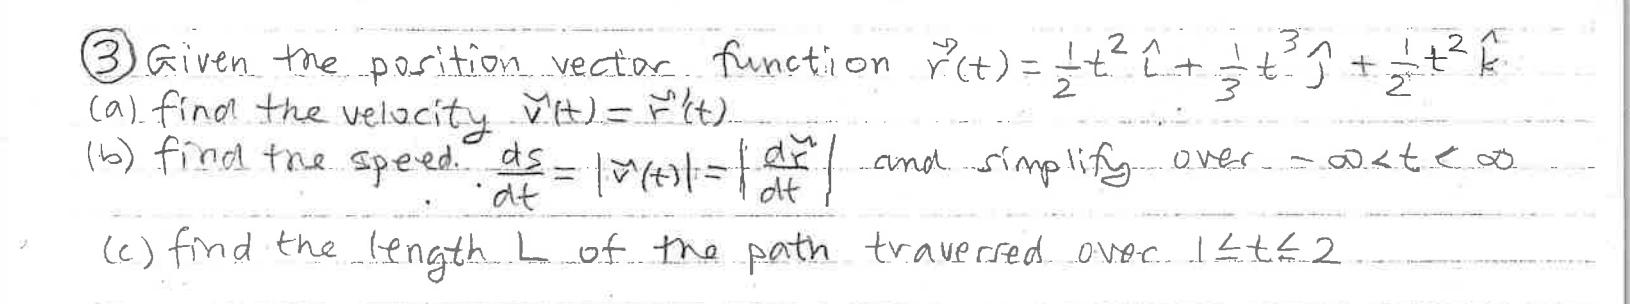 ③ Given the position vector function r⃗(t) = 1/2 t² î + 1/3 t³ ĵ + 1/2 t² k̂
(a) find the velocity v⃗(t) = r⃗'(t)
(b) find the speed ds/dt = |v⃗(t)| = |dr⃗/dt| and simplify over -∞<t<∞
(c) find the length L of the path traversed over 1≤t≤2